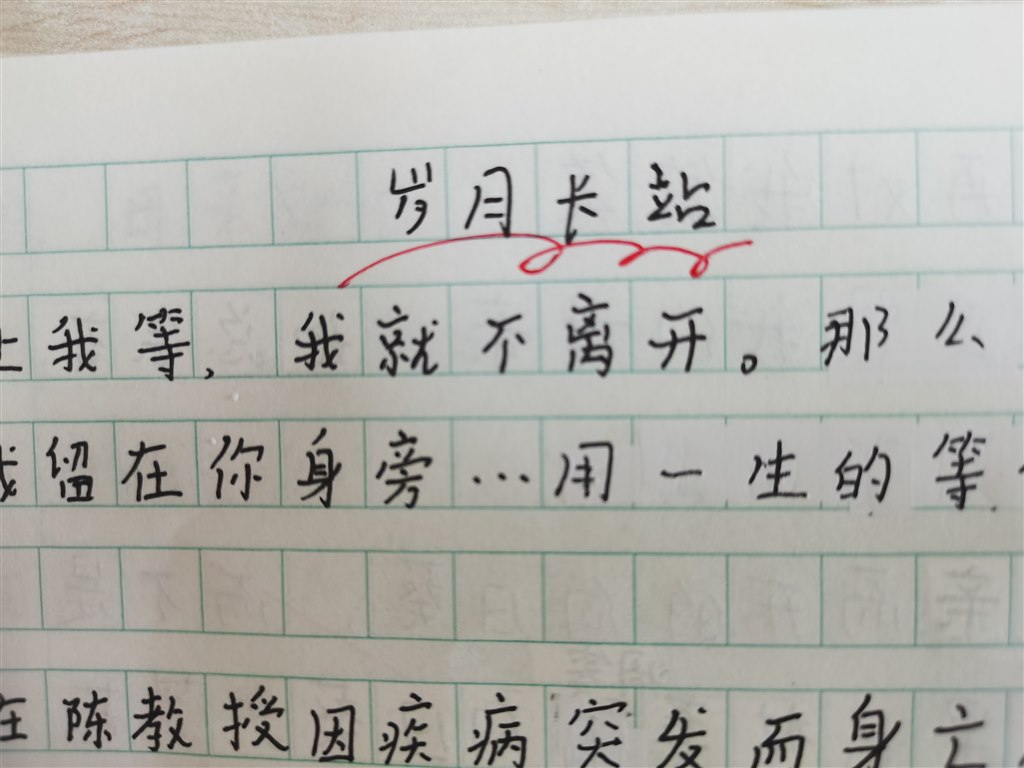 岁月长站
我等，我就不离开。那么
留在你身旁…用一生的等
在陈教授因疾病突发而身亡